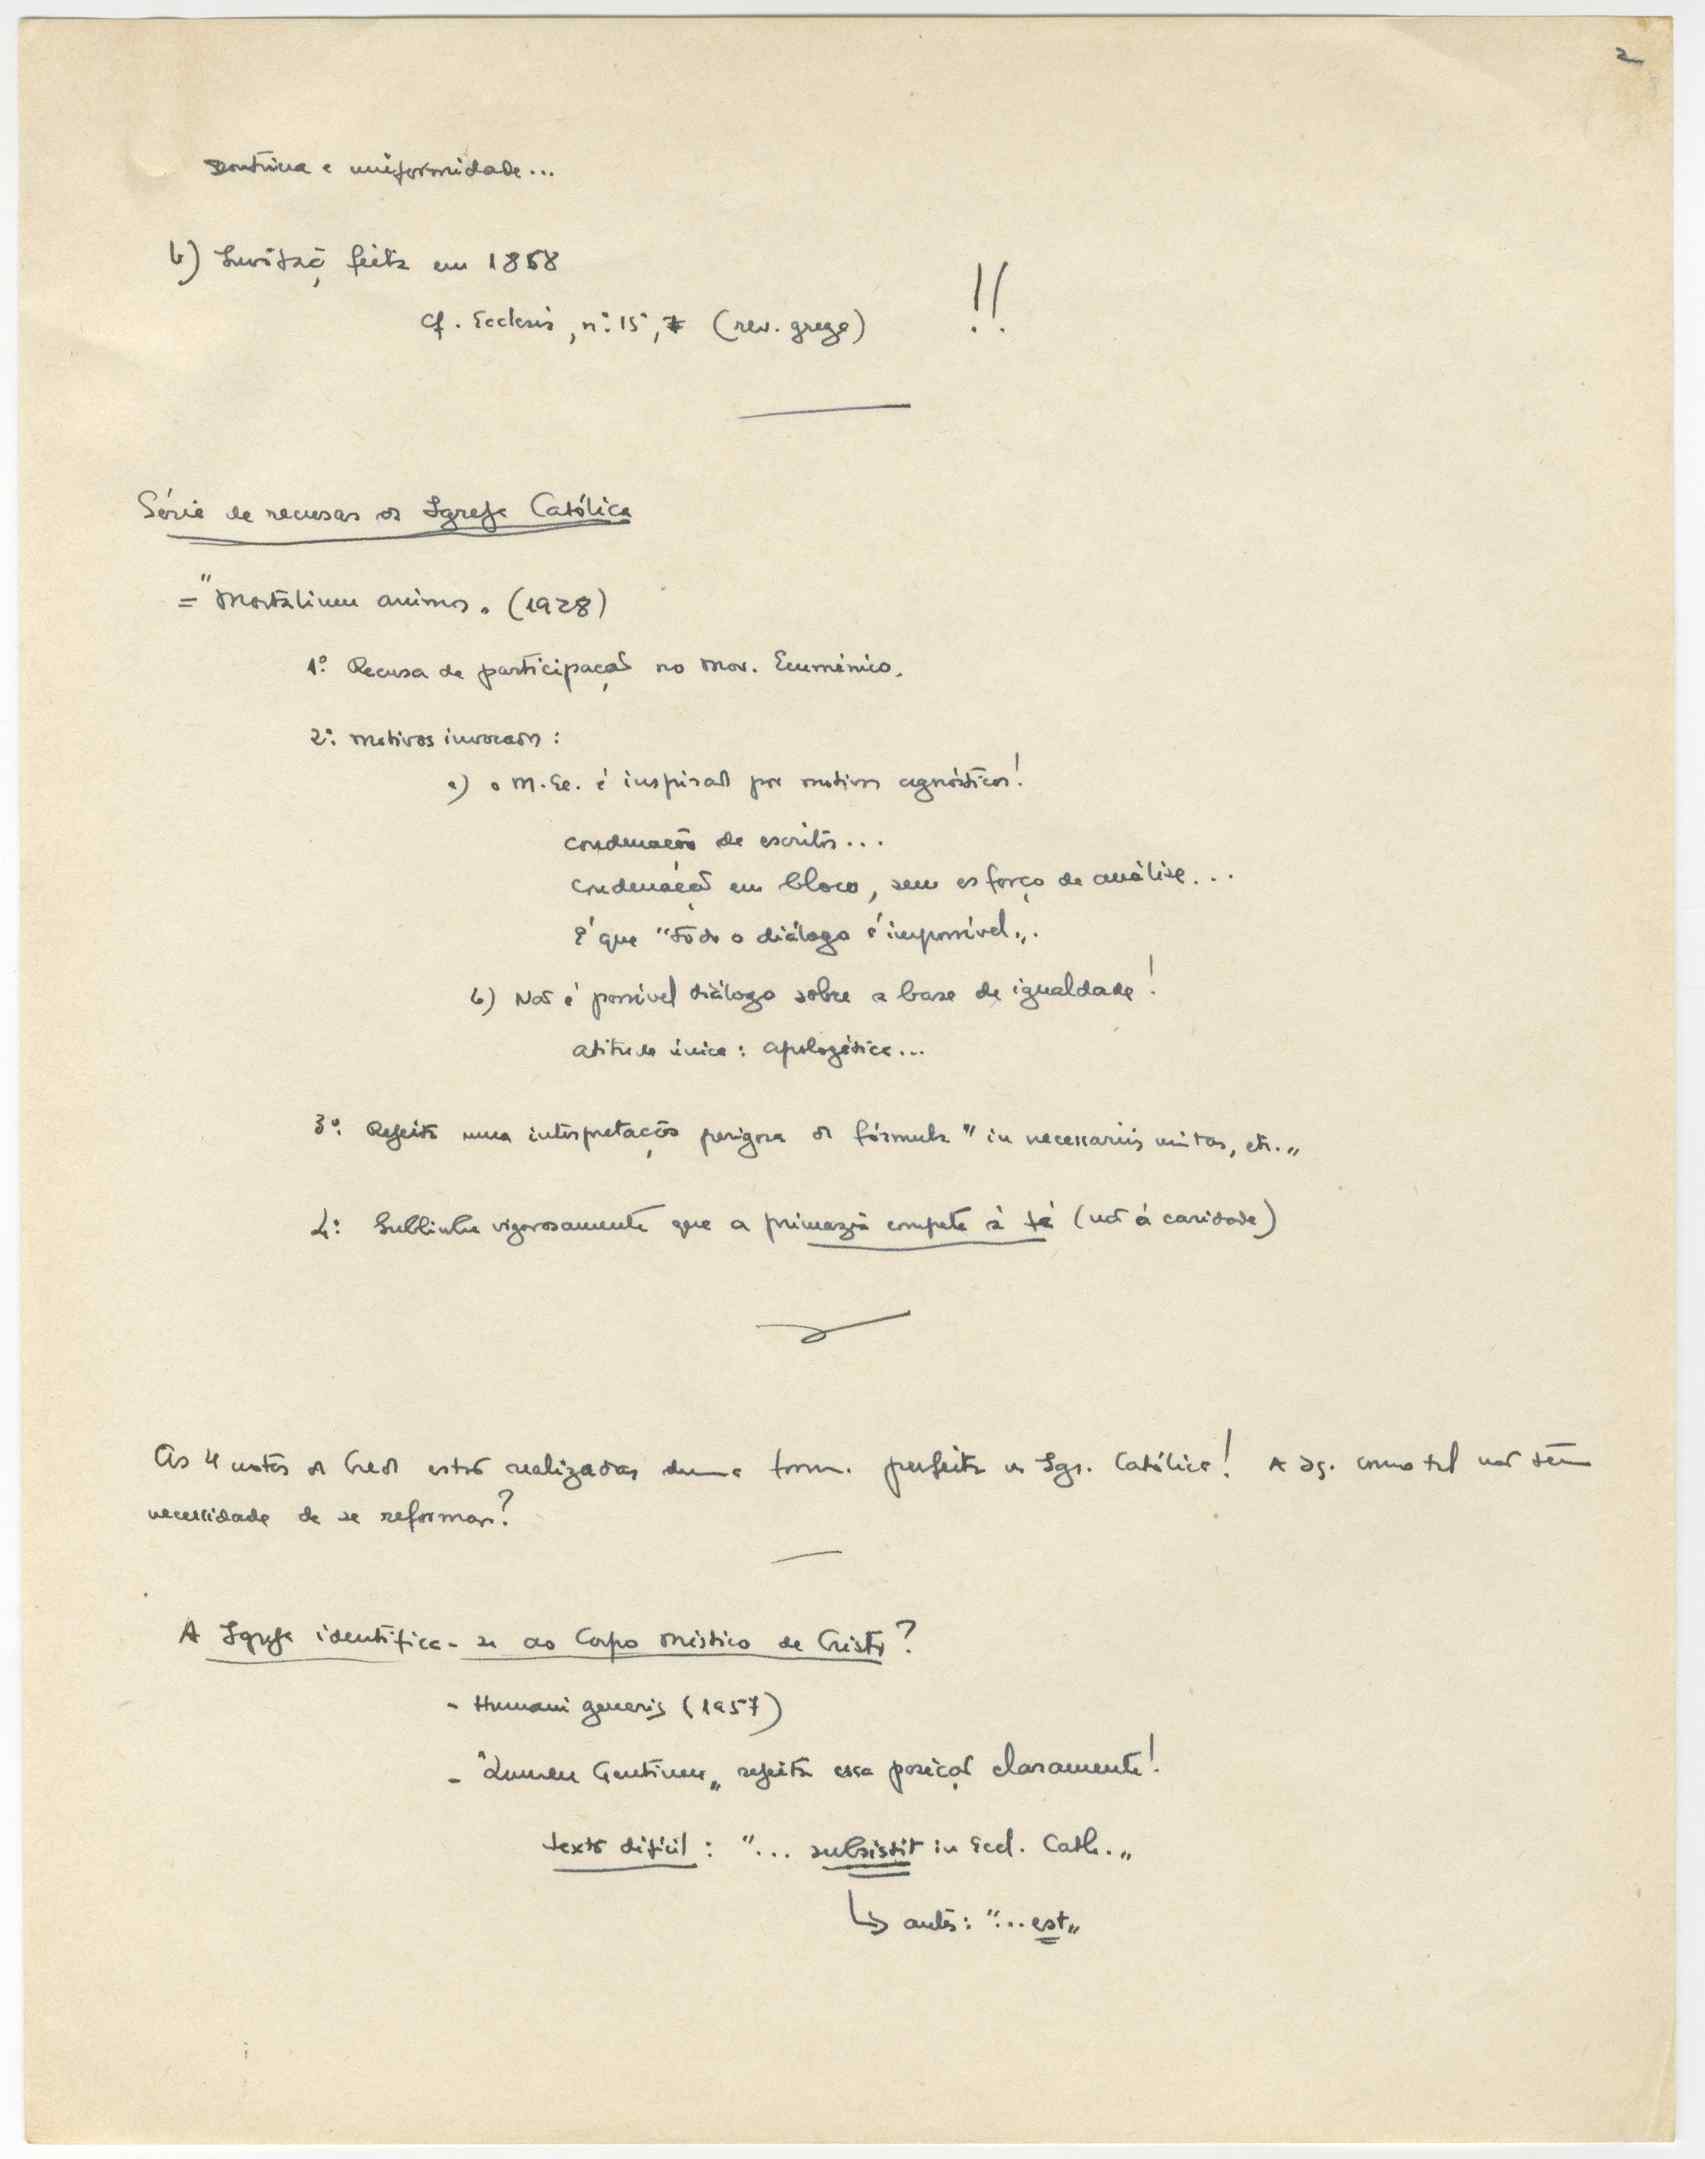 2
Doutrina e uniformidade...
b) Invitação feita em 1868
cf. Ecclesia, n.º 15, 7 (rev. grega) !!
Série de recusas da Igreja Católica
= "Mortalium animos" (1928)
1.º Recusa de participação no Mov. Ecuménico.
2.º Motivos invocados:
a) o M. Ec. é inspirado por motivos agnósticos!
condenação de escritos...
condenação em bloco, sem esforço de análise...
É que "todo o diálogo é impossível".
b) Não é possível diálogo sobre a base de igualdade!
atitude única: apologética...
3.º Rejeita uma interpretação perigosa da fórmula "in necessariis unitas, etc."
4.º Sublinha vigorosamente que a primazia compete à fé (não à caridade)
As 4 notas do Credo estão realizadas duma forma perfeita na Igr. Católica! A Ig. como tal não tem
necessidade de se reformar?
A Igreja identifica-se ao Corpo Místico de Cristo?
- Humani generis (1957)
- "Lumen Gentium" rejeita essa posição claramente!
texto difícil: "... subsistit in Eccl. Cath."
↳ antes: "... est"